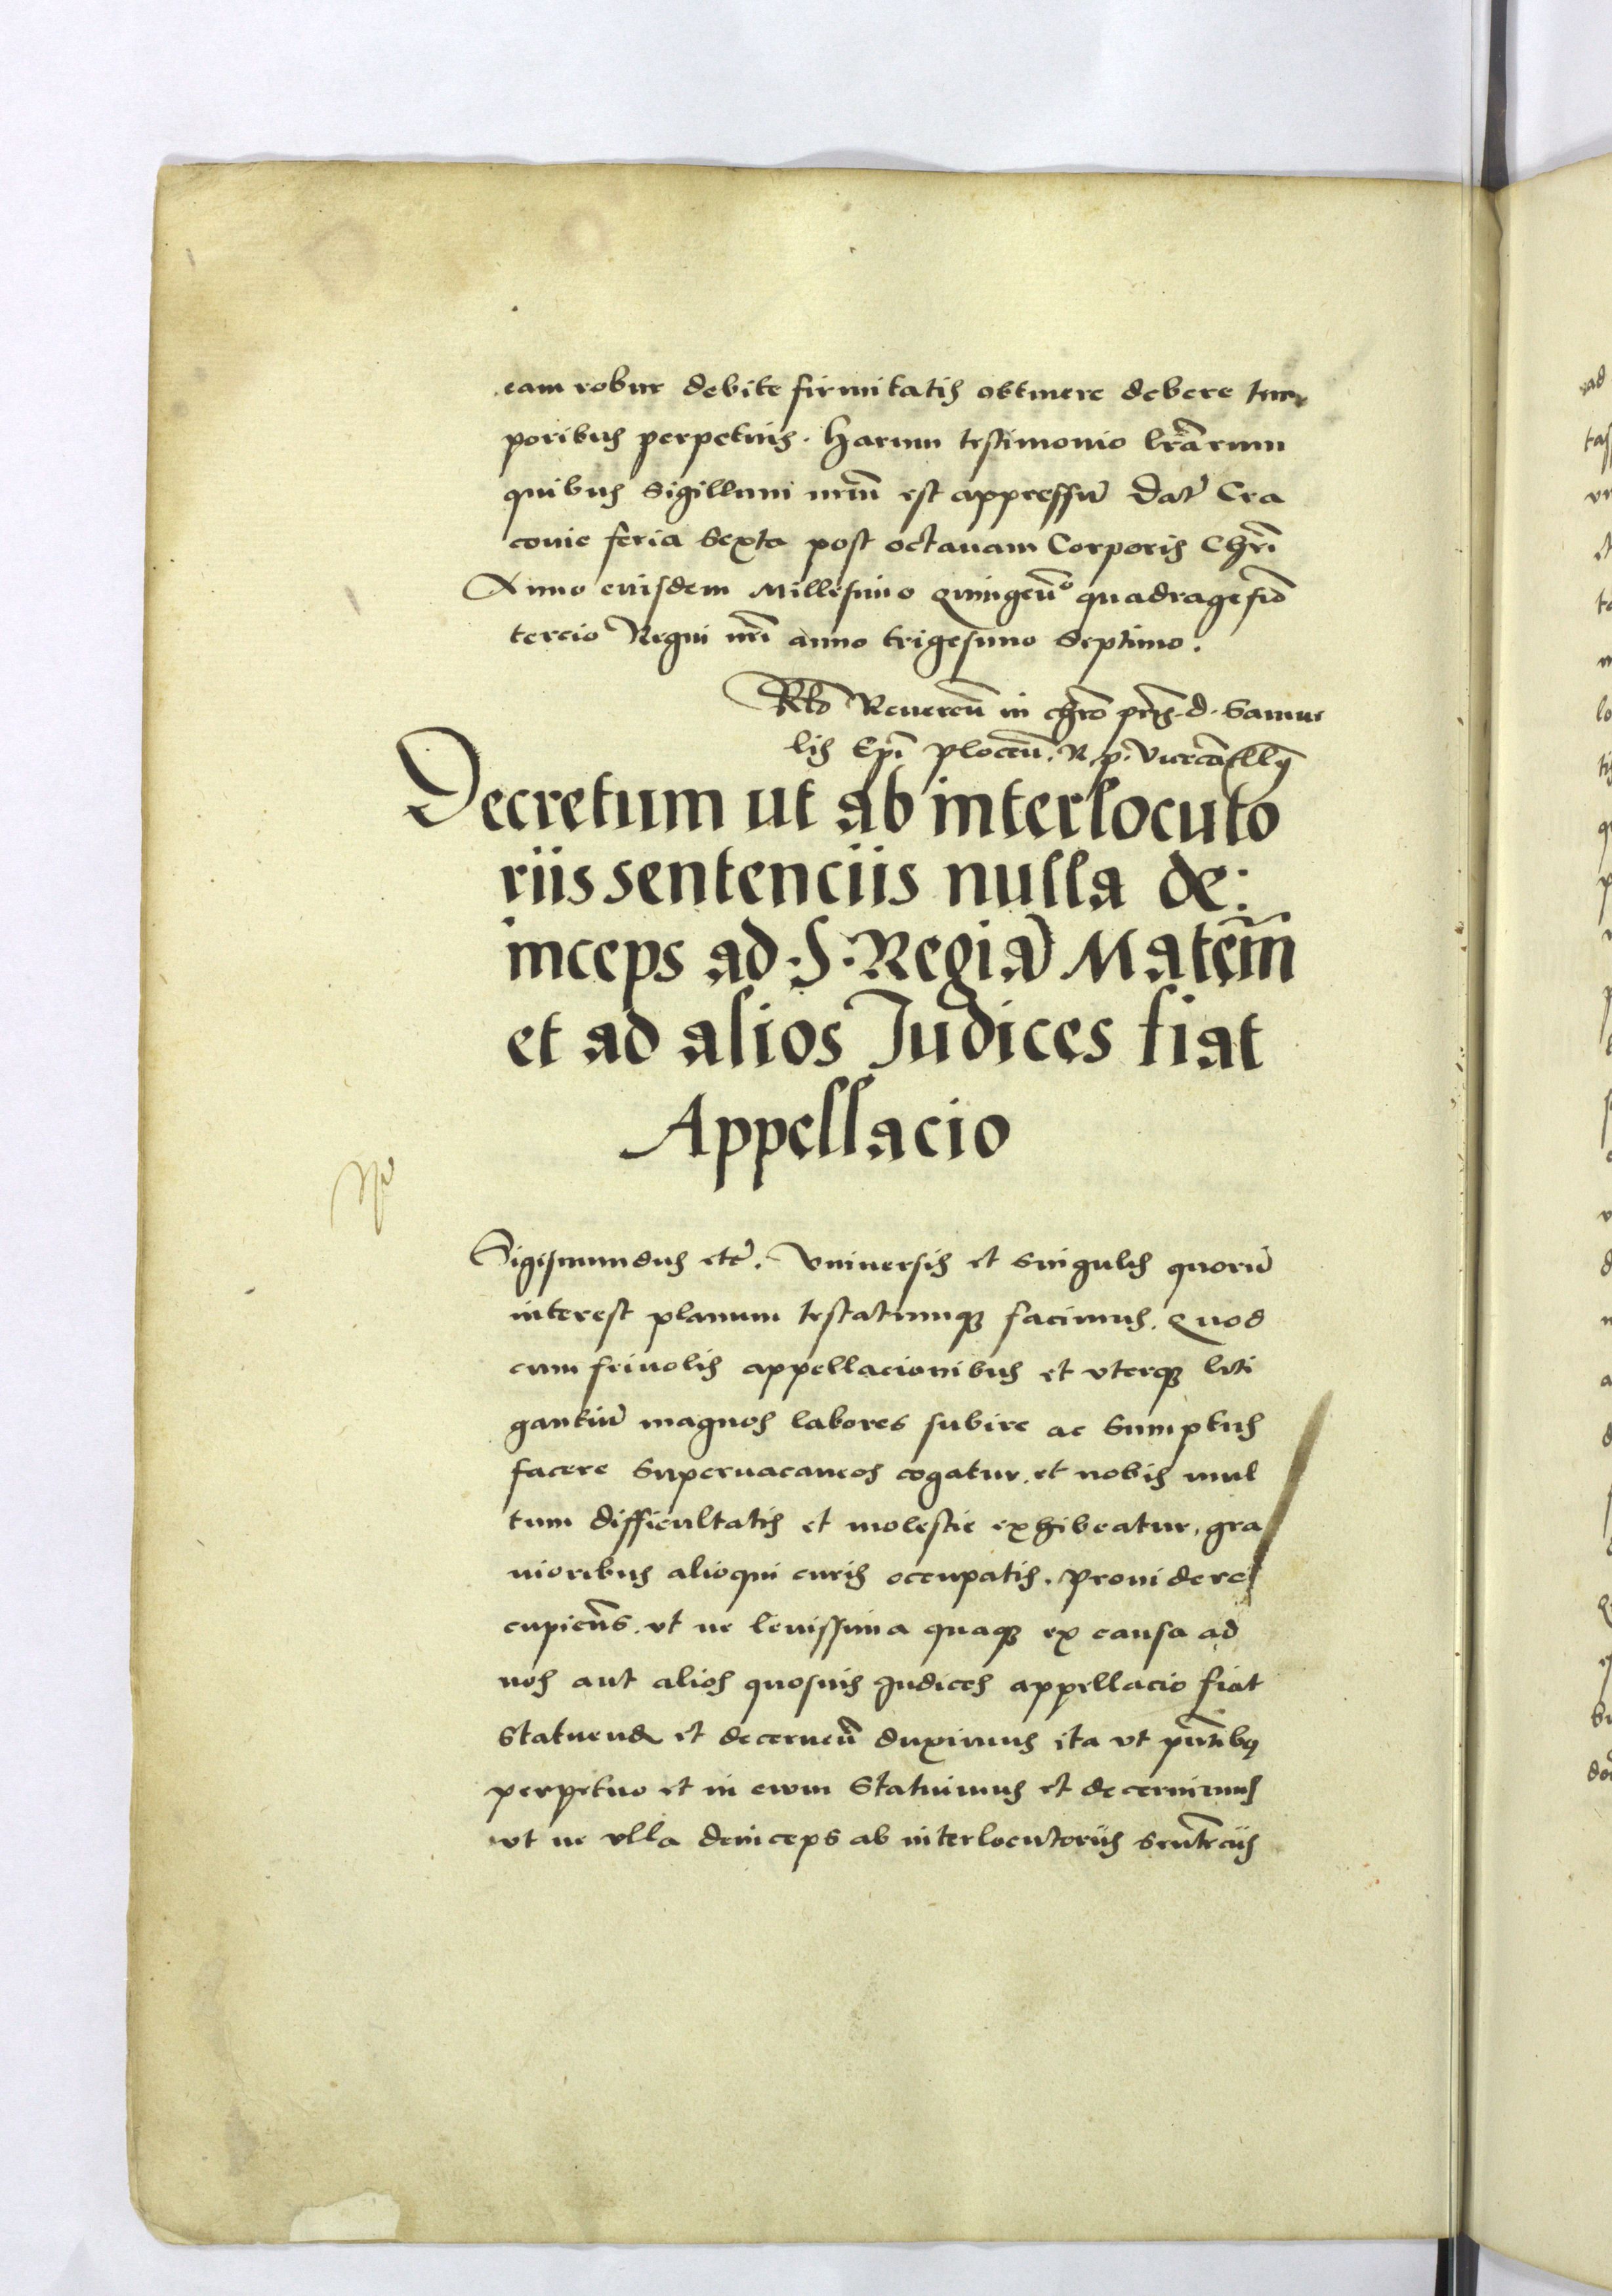 eam robur debite firmitatis obtinere debere tem
poribus perpetuis. Harum testimonio lr̃arum
quibus sigillum nrũm est appressũ Dat̃ Cra
covie feria sexta post octavam Corporis Chrĩ
Anno eiusdem Millesimo quingeñº quadragesiõ
tercio Regni nrĩ anno trigesimo septimo.
Reverẽn in chrõ pr̃is. d. Samue
lis Epĩ plocẽn. R. p. vicecãcellĩ
Decretum ut ab interlocuto
riis sentenciis nulla de:
inceps ad. S. Regiã Matẽm
et ad alios Judices fiat
Appellacio
Sigismundus etc̃. Universis et singulis quorũ
interest planum testatumqꝫ facimus. Quod
cum frivolis appellacionibus et uterqꝫ liti
gantiũ magnos labores subire ac sumptus
facere supervacaneos cogatur. et nobis mul
tum difficultatis et molestie exhibeatur, gra
vioribus alioqui curis occupatis. Providere
cupieñs. ut ne levissima quaqꝫ ex causa ad
nos aut alios quosvis Judices appellacio fiat
statuend et decerneñ duximus ita ut pñtibꝰ
perpetuo et in evum statuimus et decernimus
ut ne ulla deinceps ab interlocutoriis senteñciis